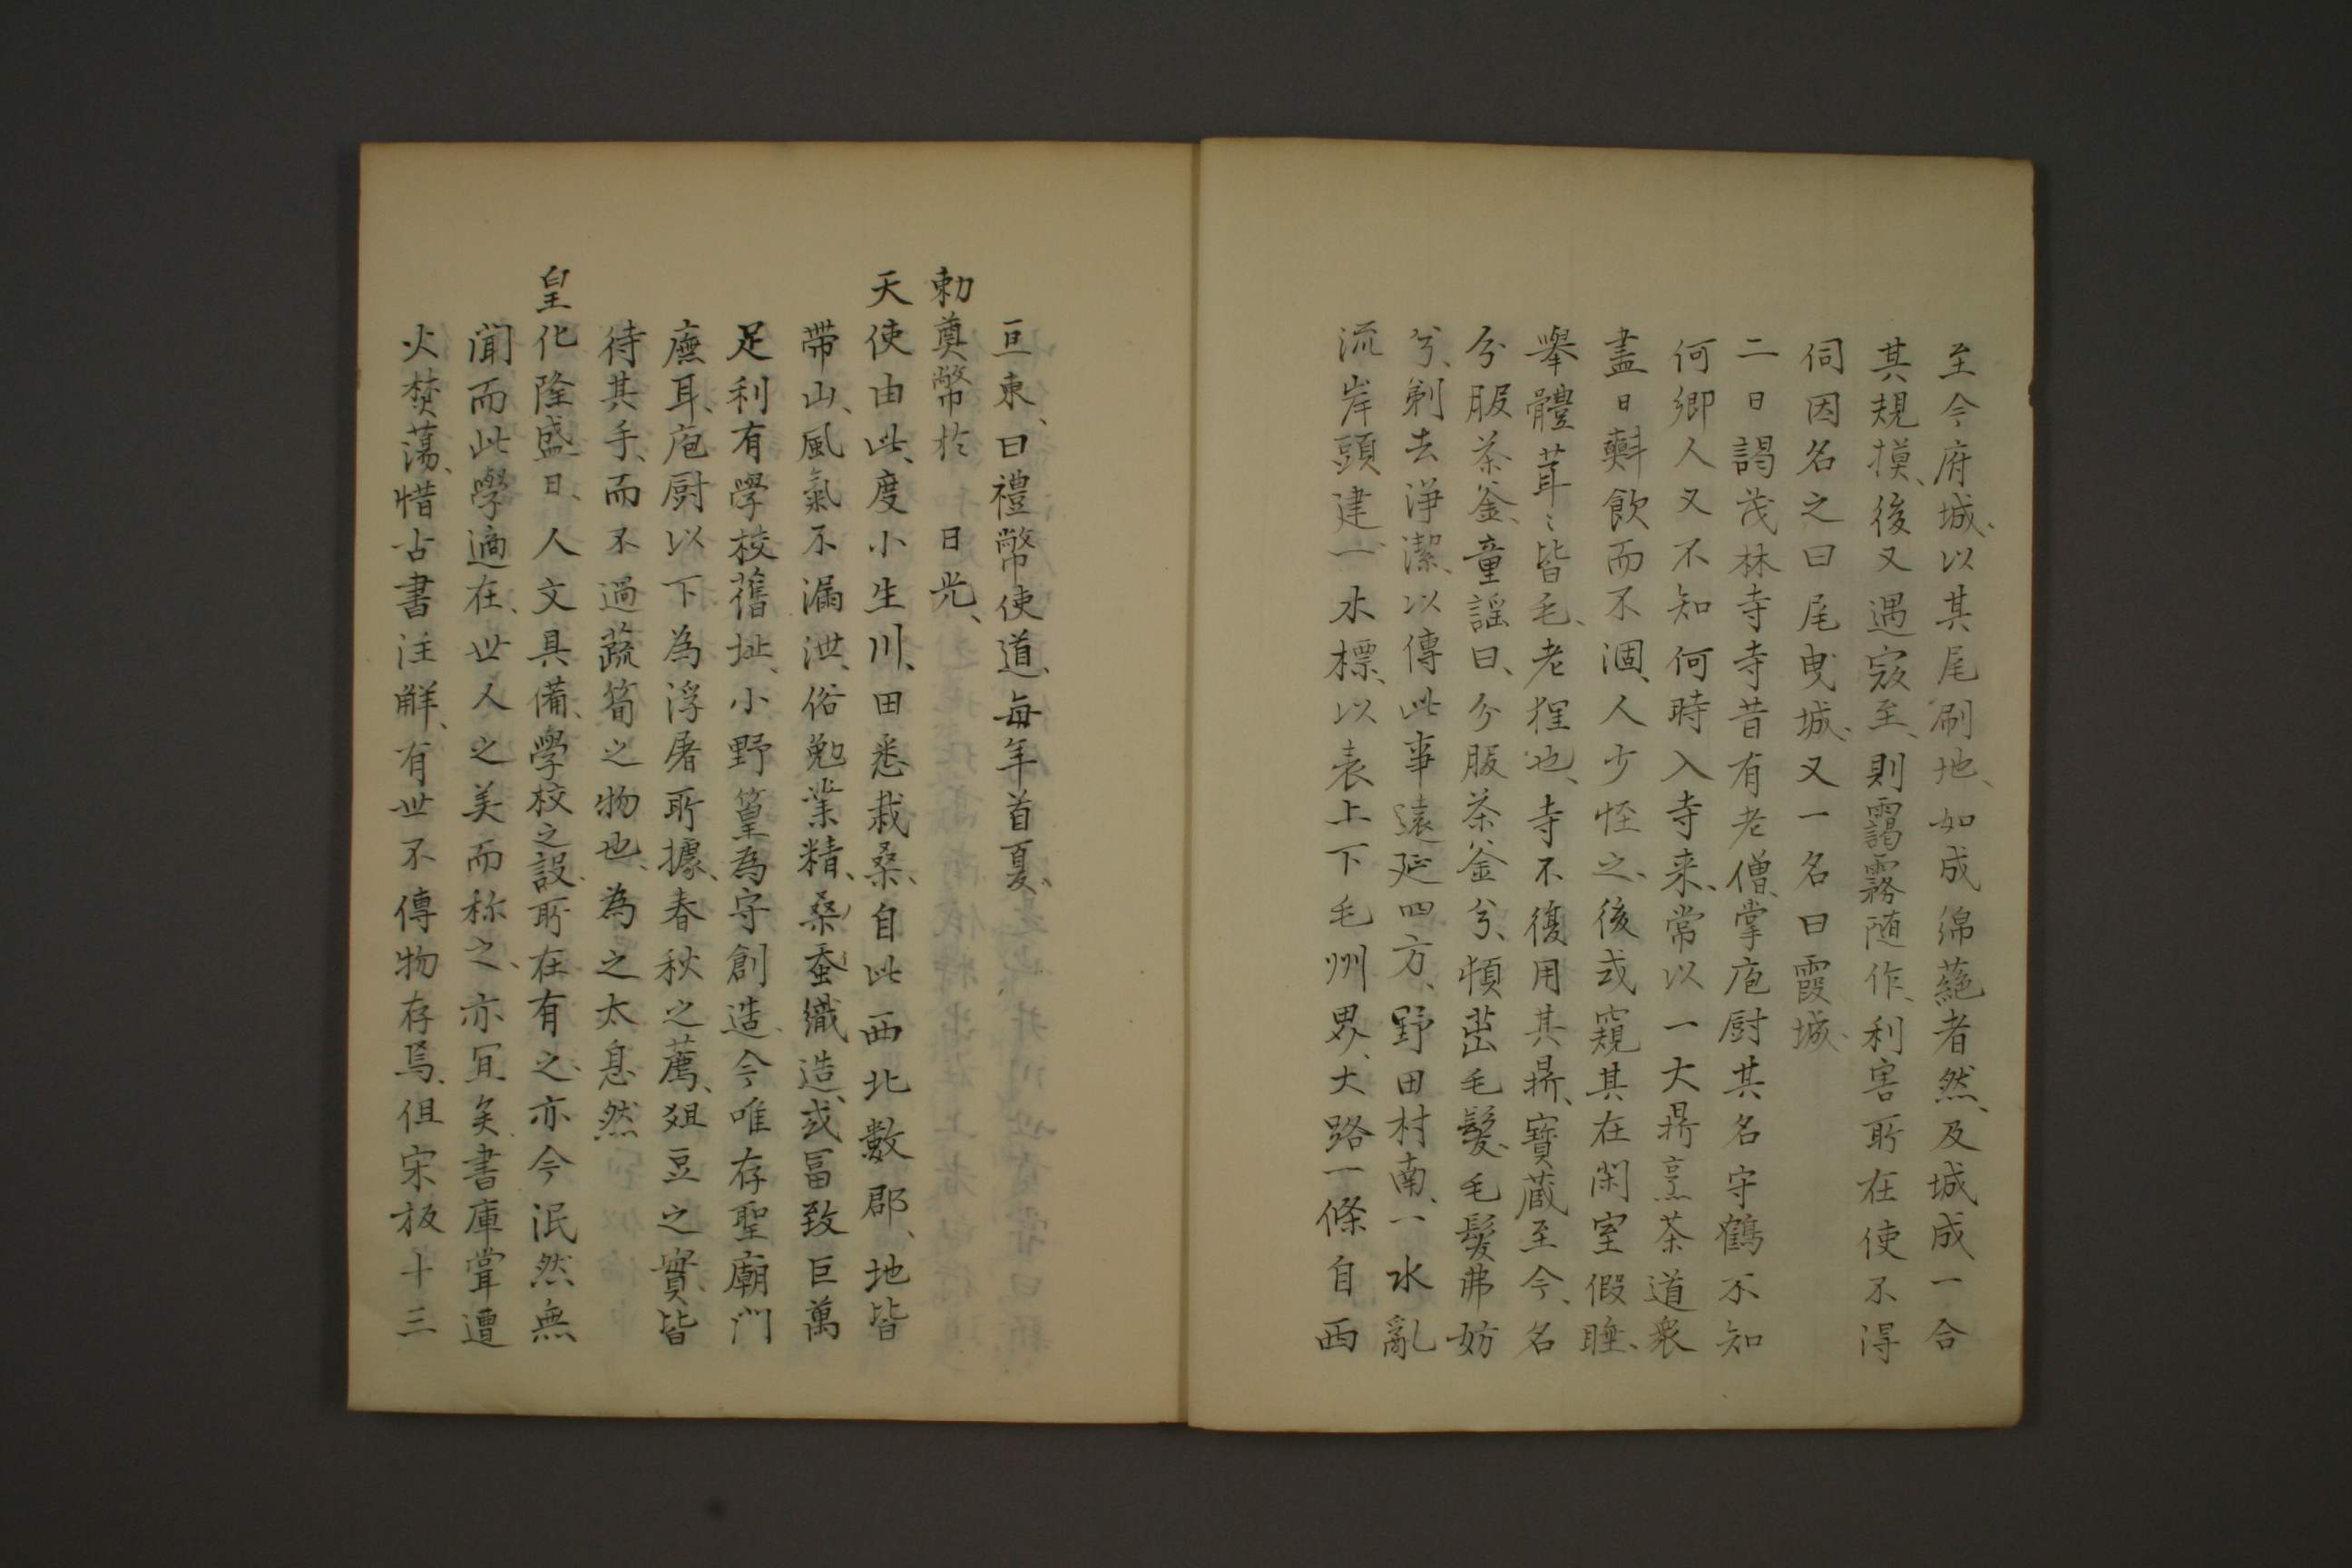 至今府城、以其尾刷地、如成綿蕝者然、及城成一合
其規摸、後又遇寇至、則靄霧随作、利害所在使不得
伺因名之曰尾曳城、又一名曰霞城、
二日謁茂林寺寺昔有老僧、掌庖厨其名守鶴不知
何鄉人又不知何時入寺来、常以一大鼎烹茶道衆
盡日㪺飲而不涸、人少怪之、後或窺其在闲室假睡、
舉體茸〻皆毛、老狸也、寺不復用其鼎、寶蔵至今、名
分服茶釜、童謡曰、分服茶釜兮、頓茁毛髮、毛髮弗妨
兮、剃去淨潔、以傳此事遠延四方、野田村南、一水亂
流岸頭建一木標、以表上下毛州界、大路一條自西
亘東、曰禮幣使道、毎年首夏、
勅奠幣於　日光、
天使由此、度小生川、田悉栽桑、自此西北數郡、地皆
帶山、風氣不漏洪、俗勉業精、桑蚕織造、或冨致巨萬
足利有學校舊址、小野篁為守創造、今唯存聖廟門
廡耳、庖厨以下為浮屠所據、春秋之薦、爼豆之實皆
待其手、而不過蔬筍之物也、為之太息然
皇化隆盛日、人文具備、學校之設、所在有之、亦今泯然無
聞而此學適在、世人之美而称之、亦冝矣、書庫嘗遭
火焚蕩、惜古書注解、有世不傳物存焉、但宋板十三